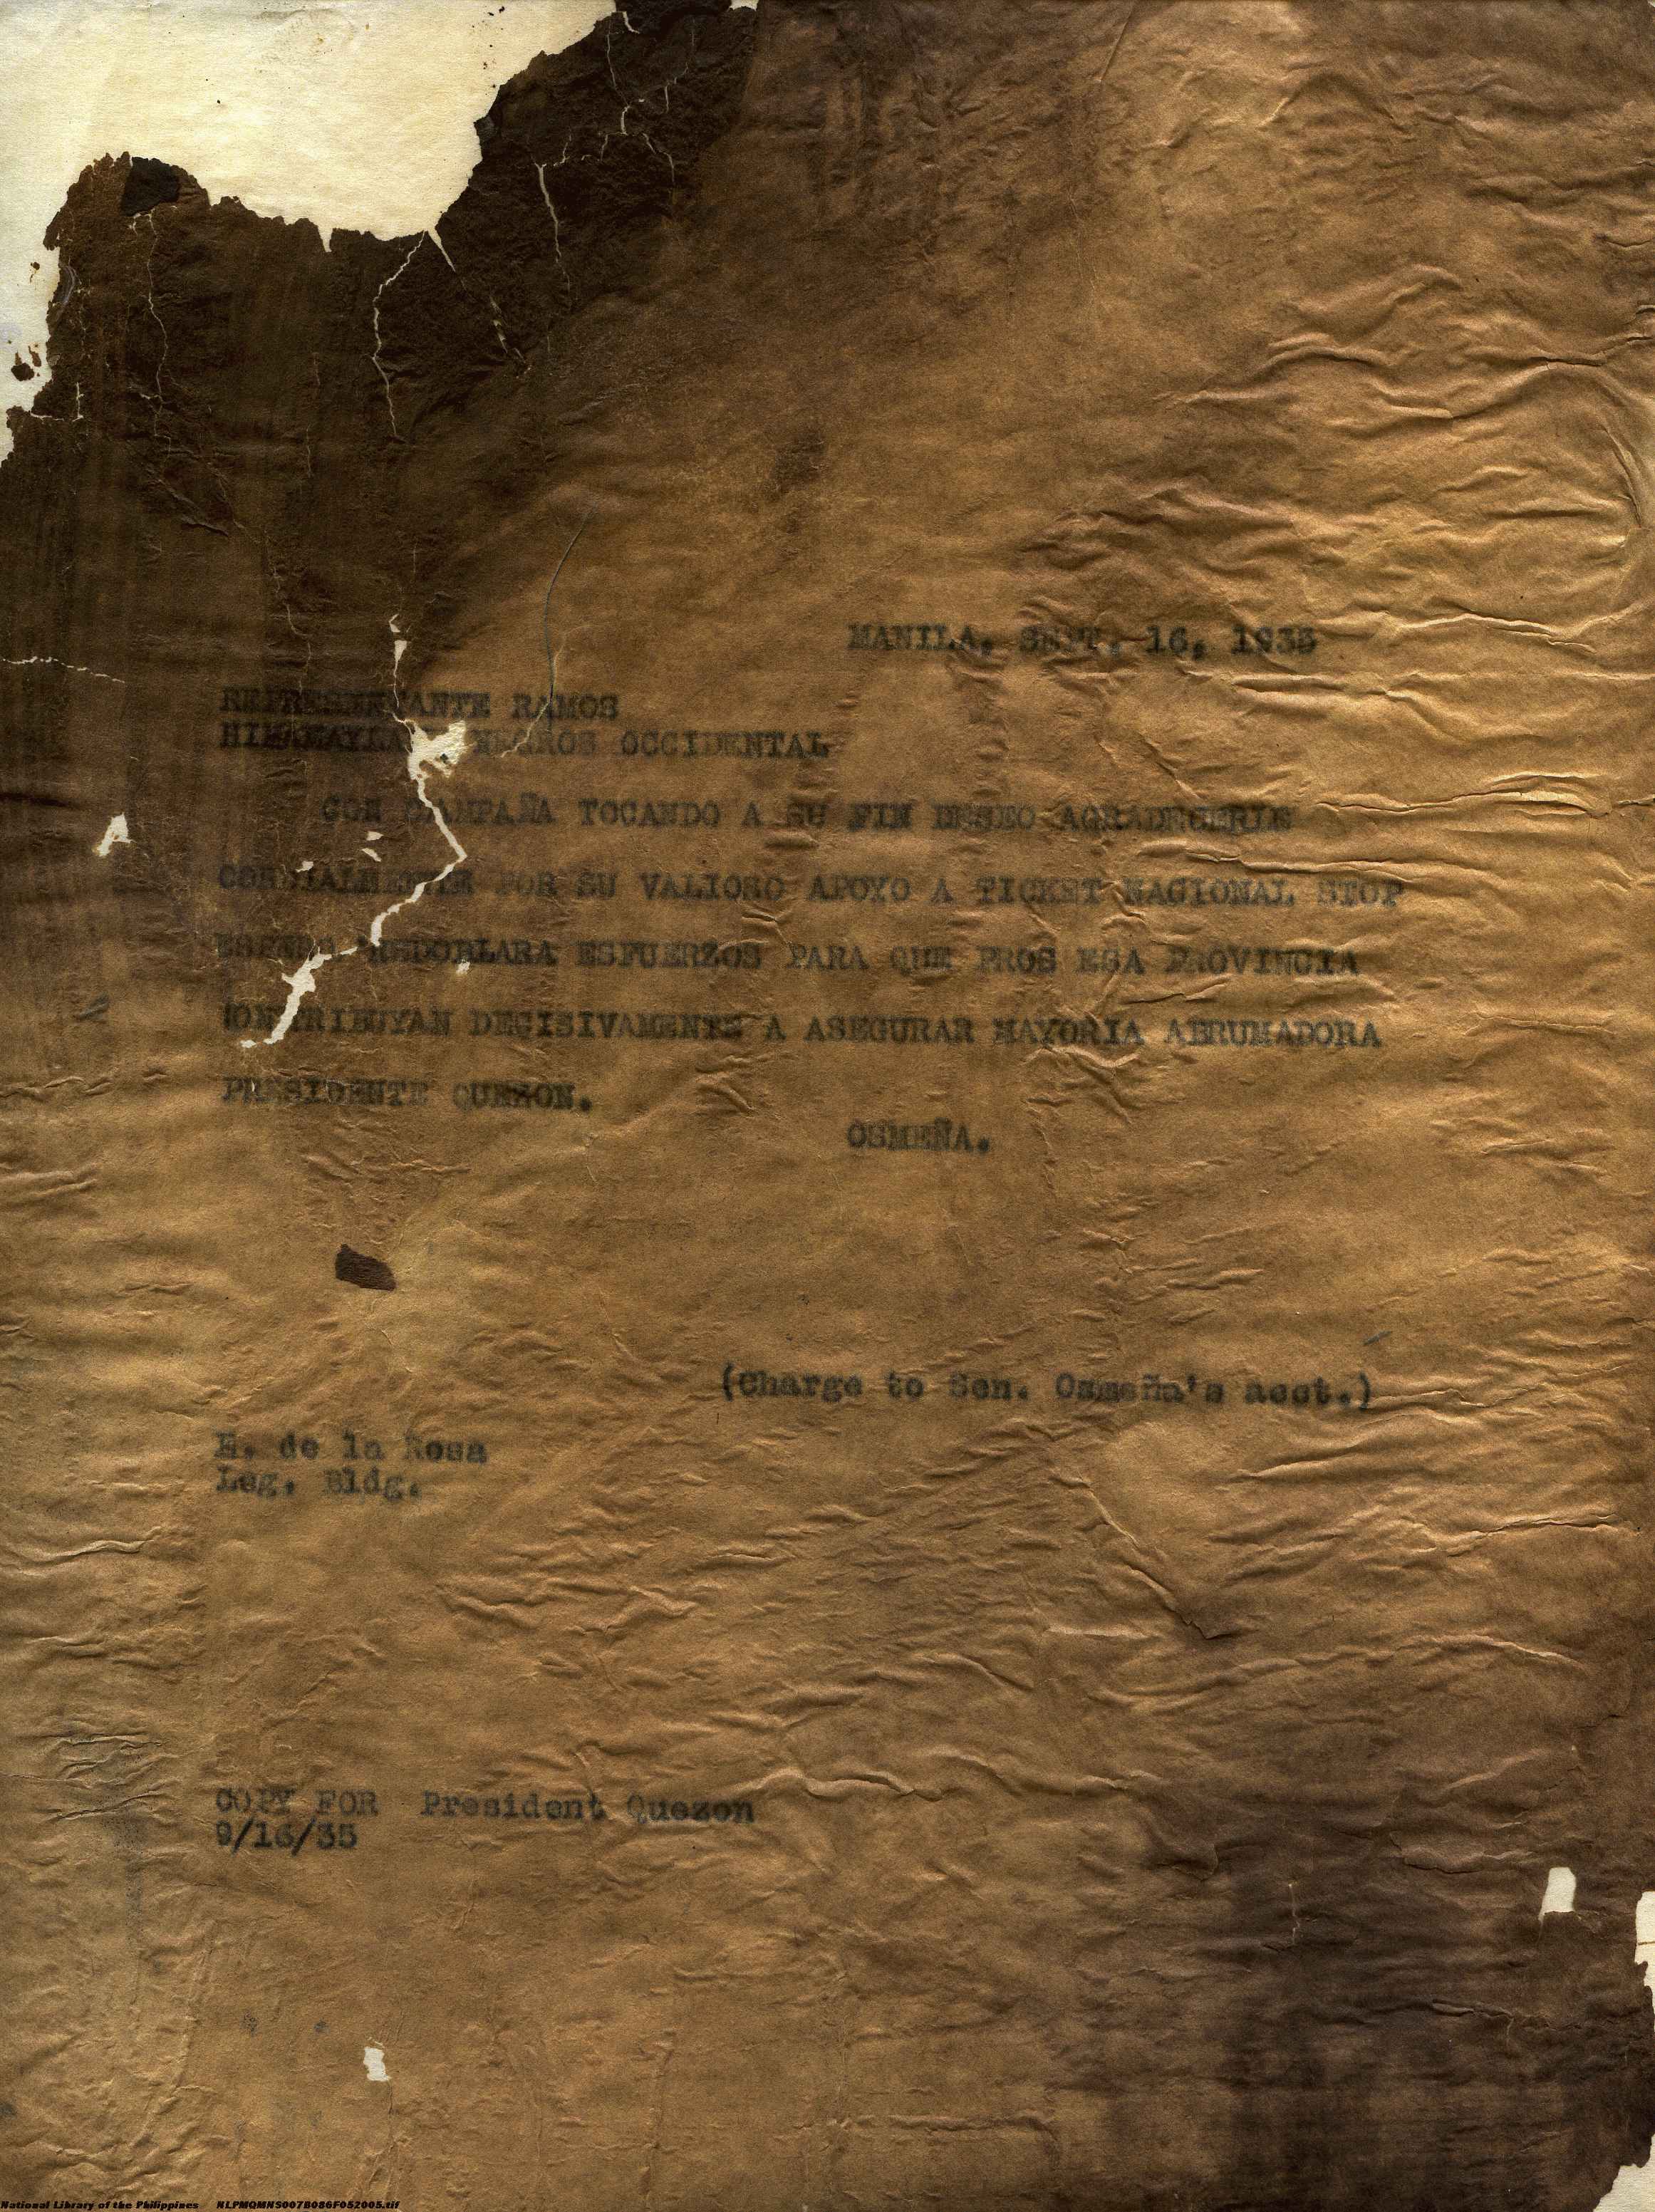 MANILA, SEPT. 16, 1935
REPRESENTANTE RAMOS
NEGROS OCCIDENTAL
CON CAMPAÑA TOCANDO A SU FIN DESEO AGRADECERLE
CORDIALMENTE POR SU VALIOSO APOYO A TICKET NACIONAL STOP
ESPERO REDOBLARA ESFUERZOS PARA QUE PROS ESA PROVINCIA
CONTRIBUYAN DECISIVAMENTE A ASEGURAR MAYORIA ABRUMADORA
PRESIDENTE QUEZON.
OSMEÑA.
(Charge to Sen. Osmeña's acct.)
H. de la Rosa
Leg. Bldg.
COPY FOR President Quezon
9/16/35
National Library of the Philippines NLPMQMNS007B086F052005.tif